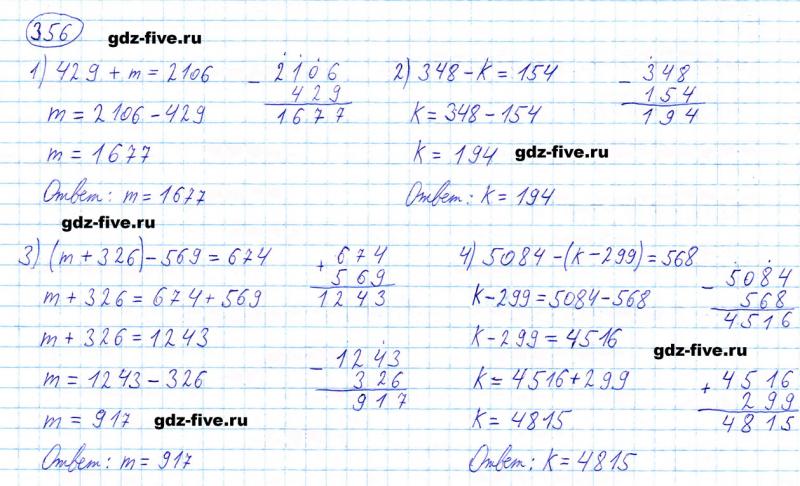 356
gdz-five.ru
1) 429 + m = 2106
m = 2106 - 429
m = 1677
Ответ: m = 1677
- 2106
429
1677
2) 348 - k = 154
k = 348 - 154
k = 194
Ответ: k = 194
- 348
154
194
gdz-five.ru
gdz-five.ru
3) (m + 326) - 569 = 674
m + 326 = 674 + 569
m + 326 = 1243
m = 1243 - 326
m = 917
Ответ: m = 917
+ 674
569
1243
- 1243
326
917
gdz-five.ru
4) 5084 - (k - 299) = 568
k - 299 = 5084 - 568
k - 299 = 4516
k = 4516 + 299
k = 4815
Ответ: k = 4815
- 5084
568
4516
gdz-five.ru
+ 4516
299
4815